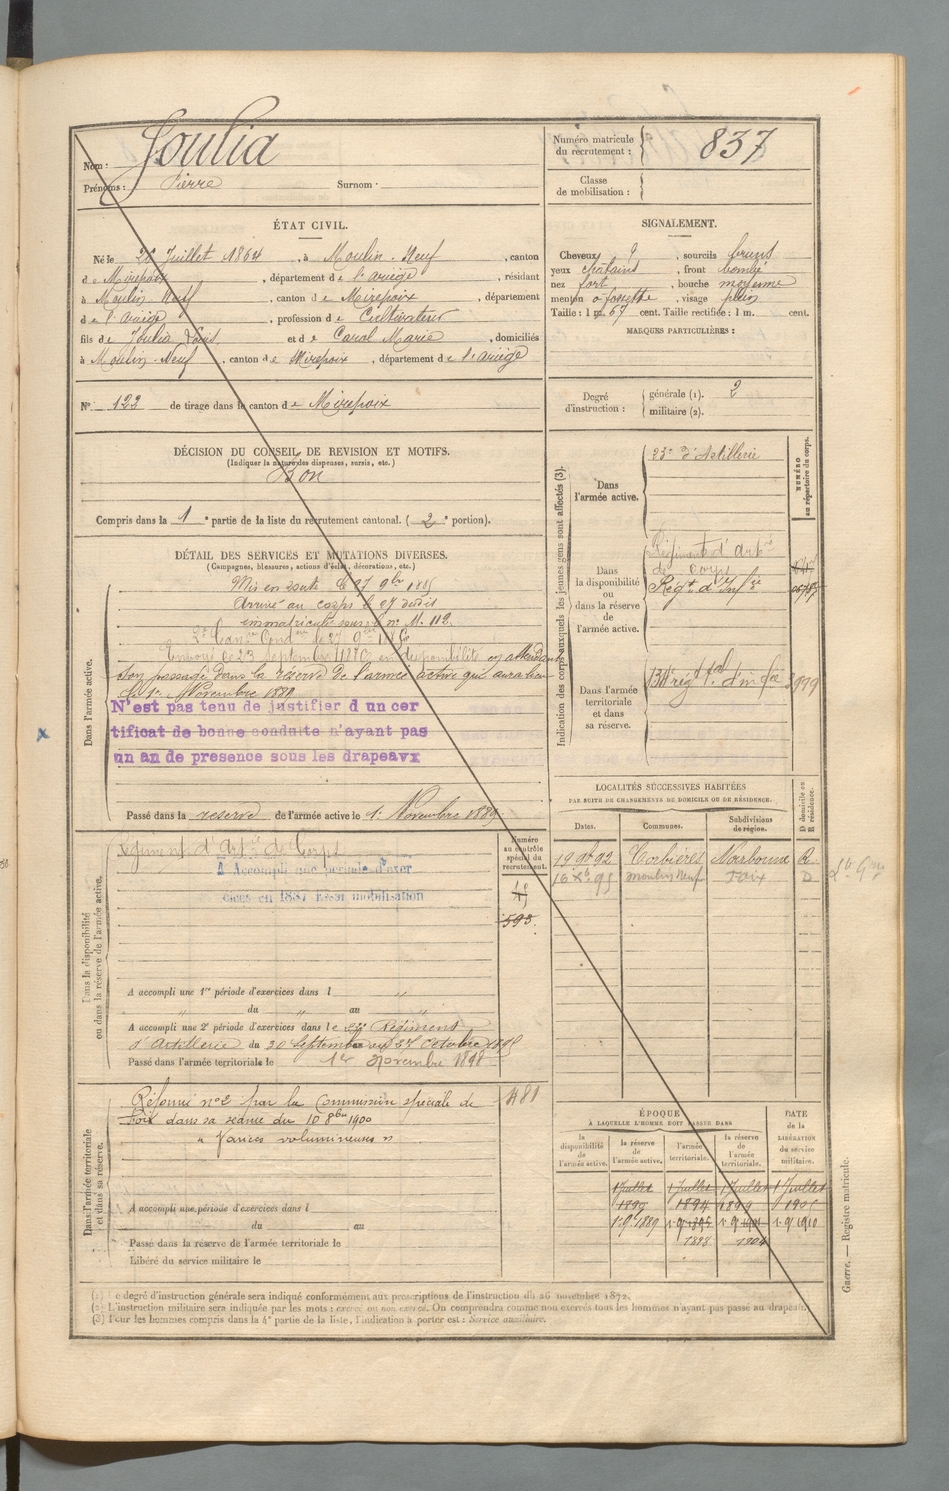 Nom : Joulia
Prénoms : Pierre Surnom :
Numéro matricule du recrutement : 837
Classe de mobilisation :
ÉTAT CIVIL.
Né le 28 Juillet 1864, à Moulin-Neuf, canton
de Mirepoix, département de l'ariège, résidant
à Moulin-Neuf, canton de Mirepoix, département
de l'ariège, profession de Cultivateur
fils de Joulia Louis et de Carol Marie, domiciliés
à Moulin-Neuf, canton de Mirepoix, département de l'ariège
SIGNALEMENT.
Cheveux, sourcils bruns
yeux chatains, front bombé
nez fort, bouche moyenne
menton à fossette, visage plein
Taille : 1 m. 67 cent. Taille rectifiée : 1 m. cent.
MARQUES PARTICULIÈRES :
N° 122 de tirage dans le canton de Mirepoix
Degré d'instruction : générale (1). 2
militaire (2).
DÉCISION DU CONSEIL DE REVISION ET MOTIFS.
(Indiquer la nature des dispenses, sursis, etc.)
Bon
Compris dans la 1e partie de la liste du recrutement cantonal. (2e portion).
DÉTAIL DES SERVICES ET MUTATIONS DIVERSES.
(Campagnes, blessures, actions d'éclat, décorations, etc.)
Dans l'armée active.
Mis en route le 27 9bre 1885
Arrivé au corps le 27 dudit
immatriculé sous le n° M. 112.
Envoyé le 23 Septembre en disponibilité en attendant
son passage dans la réserve de l'armée active qui aura lieu
le 1er Novembre 1889
N'est pas tenu de justifier d un cer
tificat de bonne conduite n'ayant pas
un an de presence sous les drapeaux
Passé dans la reserve de l'armée active le 1er Novembre 1889
Indication des corps auxquels les jeunes gens sont affectés (3).
NUMÉRO au répertoire du corps.
Dans l'armée active. 23e d'Artillerie
Dans la disponibilité ou dans la réserve de l'armée active.
Régiment d'Artie
de Corps
Régt d'Infie
Dans l'armée territoriale et dans sa réserve.
LOCALITÉS SUCCESSIVES HABITÉES
PAR SUITE DE CHANGEMENTS DE DOMICILE OU DE RÉSIDENCE.
Dates. Communes. Subdivisions de région. D domicile ou R résidence.
19 9b 92 Corbières Narbonne R
16 Xb 95 Moulin Neuf Foix D
Dans la disponibilité ou dans la réserve de l'armée active.
Numéro au contrôle spécial du recrutement.
Régiment d'Artie de Corps
A Accompli une periode d'exer
cices en 1887 Essai mobilisation
593
A accompli une 1re période d'exercices dans l "
" du " au "
A accompli une 2e période d'exercices dans le 23e Régiment
d'Artillerie du 30 Septembre au 27 Octobre 1895
Passé dans l'armée territoriale le 1er Novembre 1898
Dans l'armée territoriale et dans sa réserve.
Réformé n° 2 par la Commission spéciale de
Foix dans sa séance du 10 8bre 1900
" Varices volumineuses "
A accompli une période d'exercices dans l
du au
Passé dans la réserve de l'armée territoriale le
Libéré du service militaire le
ÉPOQUE
À LAQUELLE L'HOMME DOIT PASSER DANS
la disponibilité de l'armée active. la réserve de l'armée active. l'armée territoriale. la réserve de l'armée territoriale. DATE DE LA LIBÉRATION du service militaire.
1 Juillet 1 Juillet 1 Juillet 1 Juillet
1894 1899
1898 1904
Guerre. — Registre matricule.
(1) Le degré d'instruction générale sera indiqué conformément aux prescriptions de l'instruction du 26 novembre 1872.
(2) L'instruction militaire sera indiquée par les mots : exercé ou non exercé. On comprendra comme non exercés tous les hommes n'ayant pas passé au drapeau.
(3) Pour les hommes compris dans la 4e partie de la liste, l'indication à porter est : Service auxiliaire.